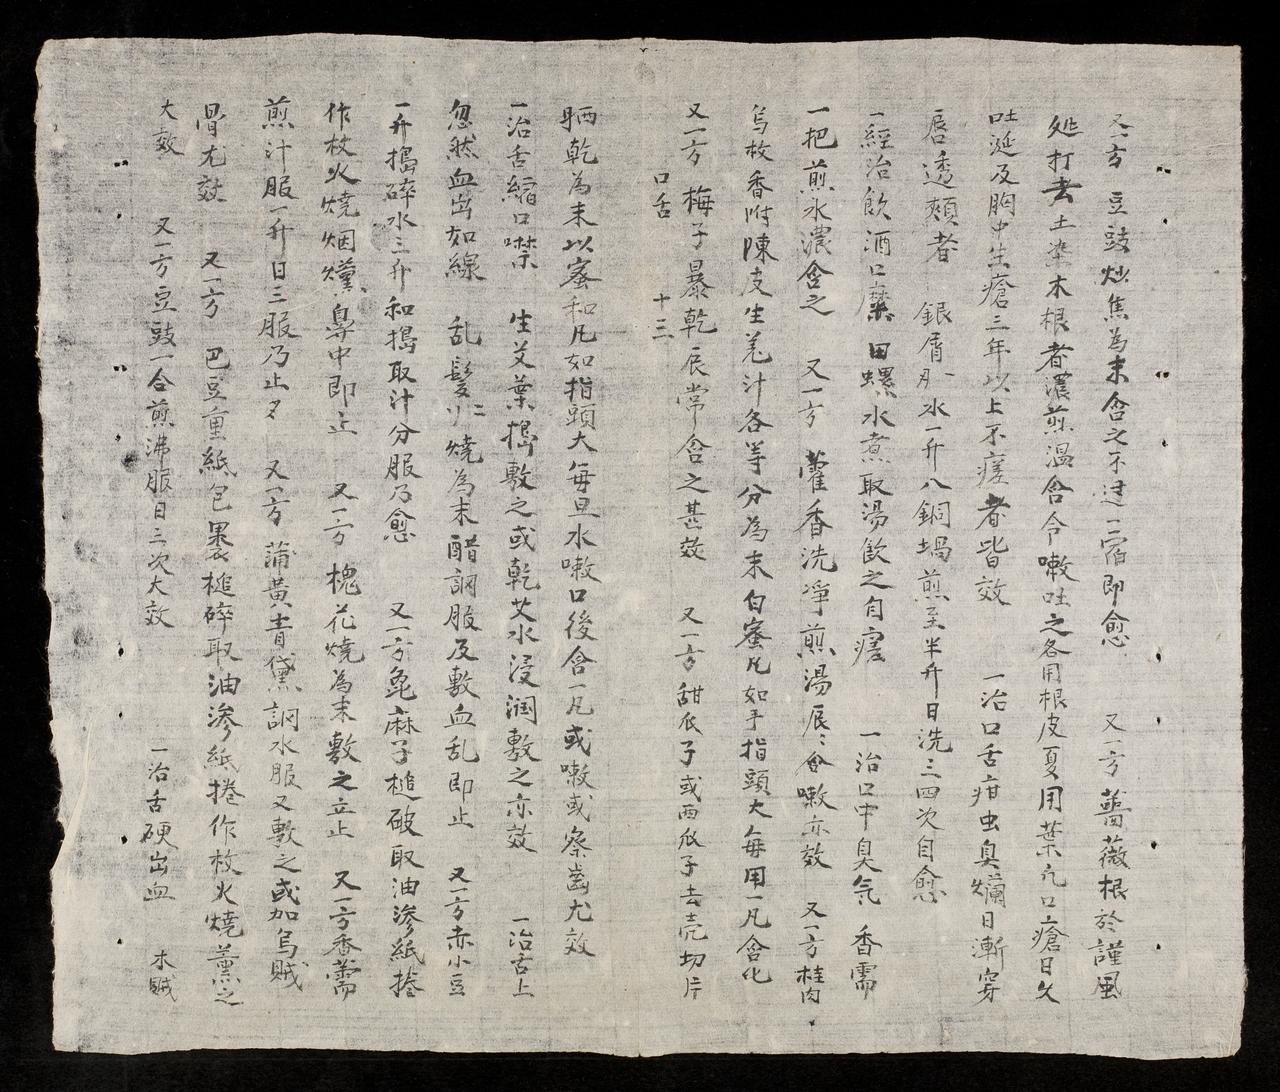 又一方　豆豉炒焦為末含之不过二宿即愈　又一方薔薇根於謹風
処打去土塗木根者濃煎温含令嗽吐之各用根皮夏用葉凢口瘡日久
吐涎及胸中生瘡三年以上不瘥者皆效　一治口舌疳虫臭爛日漸穿
唇透頬者　銀屑水一升八銅堝煎至半升日洗三四次自愈
一經治飲酒口糜　田螺水煮取湯飲之自瘥　一治口中臭气　香需
一把煎水濃含之　又一方　藿香洗凈煎湯辰〻含嗽亦效　又一方桂肉
烏枚香附陳皮生羌汁各等分為末白蜜凡如手指頭大每用一凡含化
又一方　梅子暴乾辰常含之甚效　又一方甜瓜子或西瓜子去壳切片
口舌　十三
晒乾為末以蜜和凡如指頭大每旦水嗽口後含一凡或嗽或察齒尤效
一治舌縮口噤　生艾葉搗敷之或乾艾水浸潤敷之亦效　一治舌上
忽然血出如線　乱髮燒為末醋調服及敷血乱即止　又一方赤小豆
一升搗碎水三升和搗取汁分服乃愈　又一方萞麻子槌破取油渗紙捲
作枚火燒烟熏鼻中即止　又一方　槐花燒為末敷之立止　又一方香薷
煎汁服一升日三服乃止　又一方　蒲黃青黛調水服又敷之或加烏賊
骨尤效　又一方　巴豆重紙包裹槌碎取油渗紙捲作枚火燒薰之
大效　又一方豆豉一合煎沸服日三次大效　一治舌硬出血　木賊